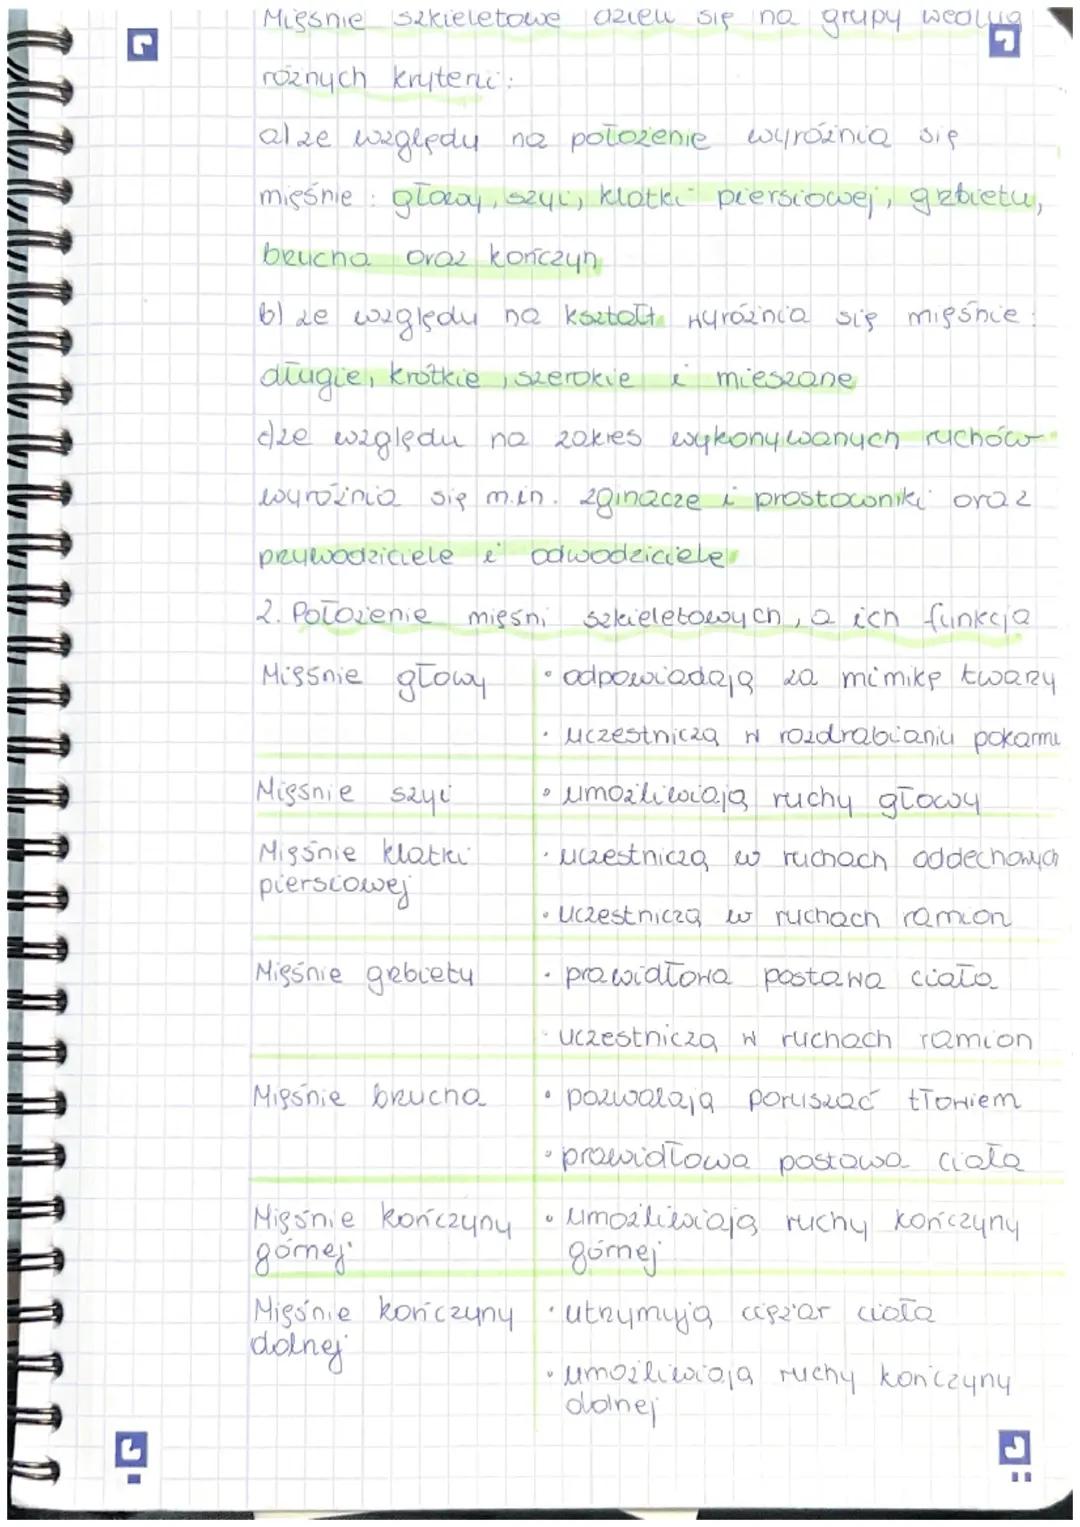 Mięśnie szkieletowe dzieli się na grupy według
różnych kryterii:
a) ze względu na położenie wyróżnia się
mięśnie: głowy, szyi, klatki piersiowej, grzbietu,
brzucha oraz kończyn
b) ze względu na kształt wyróżnia się mięśnie:
długie, krótkie, szerokie i mieszane
c) ze względu na zakres wykonywanych ruchów
wyróżnia się m.in. zginacze i prostowniki oraz
przywodziciele i odwodziciele
2. Położenie mięśni szkieletowych, a ich funkcja
Mięśnie głowy
• odpowiadają za mimikę twarzy
• uczestniczą w rozdrabianiu pokarmu
Mięśnie szyi
• umożliwiają ruchy głowy
Mięśnie klatki
piersiowej
• uczestniczą w ruchach oddechowych
• uczestniczą w ruchach ramion
Mięśnie grzbietu
• prawidłowa postawa ciała
• uczestniczą w ruchach ramion
Mięśnie brzucha
• pozwalają poruszać tłowiem
• prawidłowa postawa ciała
Mięśnie kończyny
górnej
• umożliwiają ruchy kończyny
górnej
Mięśnie kończyny
dolnej
• utrzymują ciężar ciała
• umożliwiają ruchy kończyny
dolnej